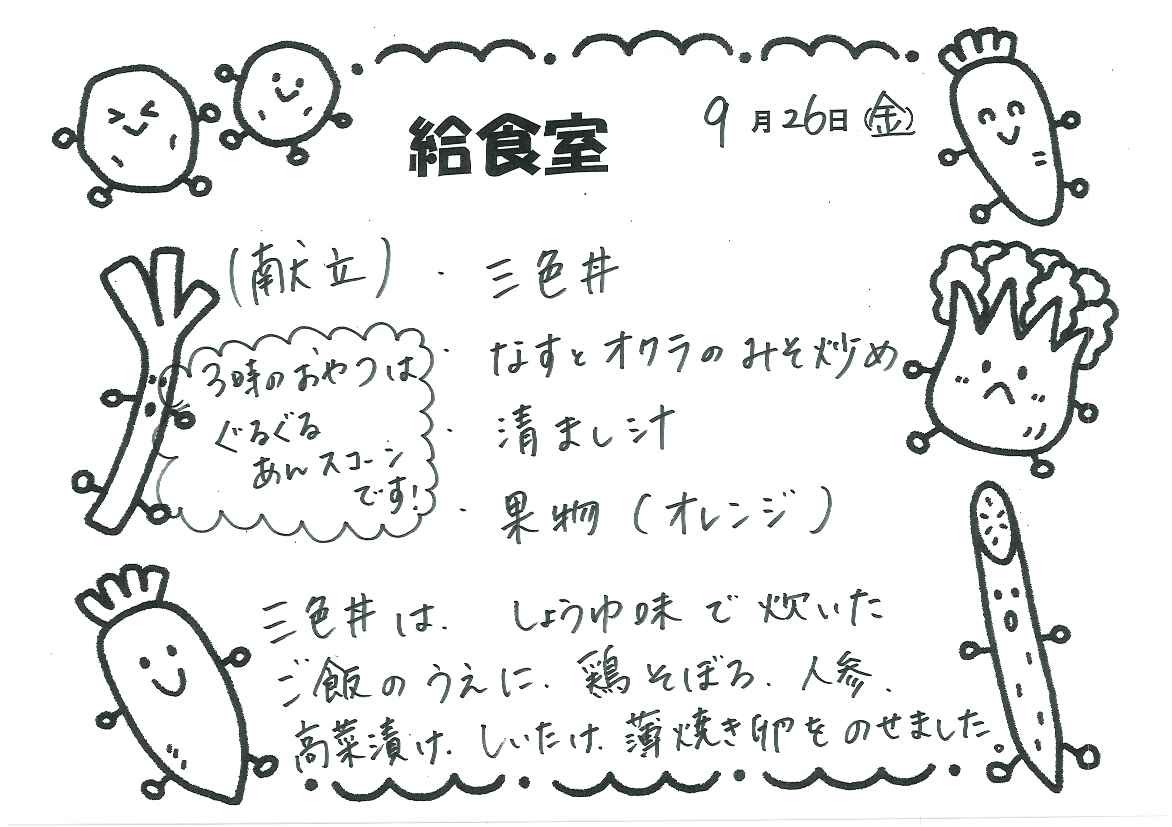 給食室
9月26日(金)
(献立)・三色丼
・なすとオクラのみそ炒め
・清まし汁
・果物(オレンジ)
3時のおやつは
ぐるぐる
あんスコーン
です!
三色丼は、しょうゆ味で炊いた
ご飯のうえに、鶏そぼろ、人参、
高菜漬け、しいたけ、薄焼き卵をのせました。